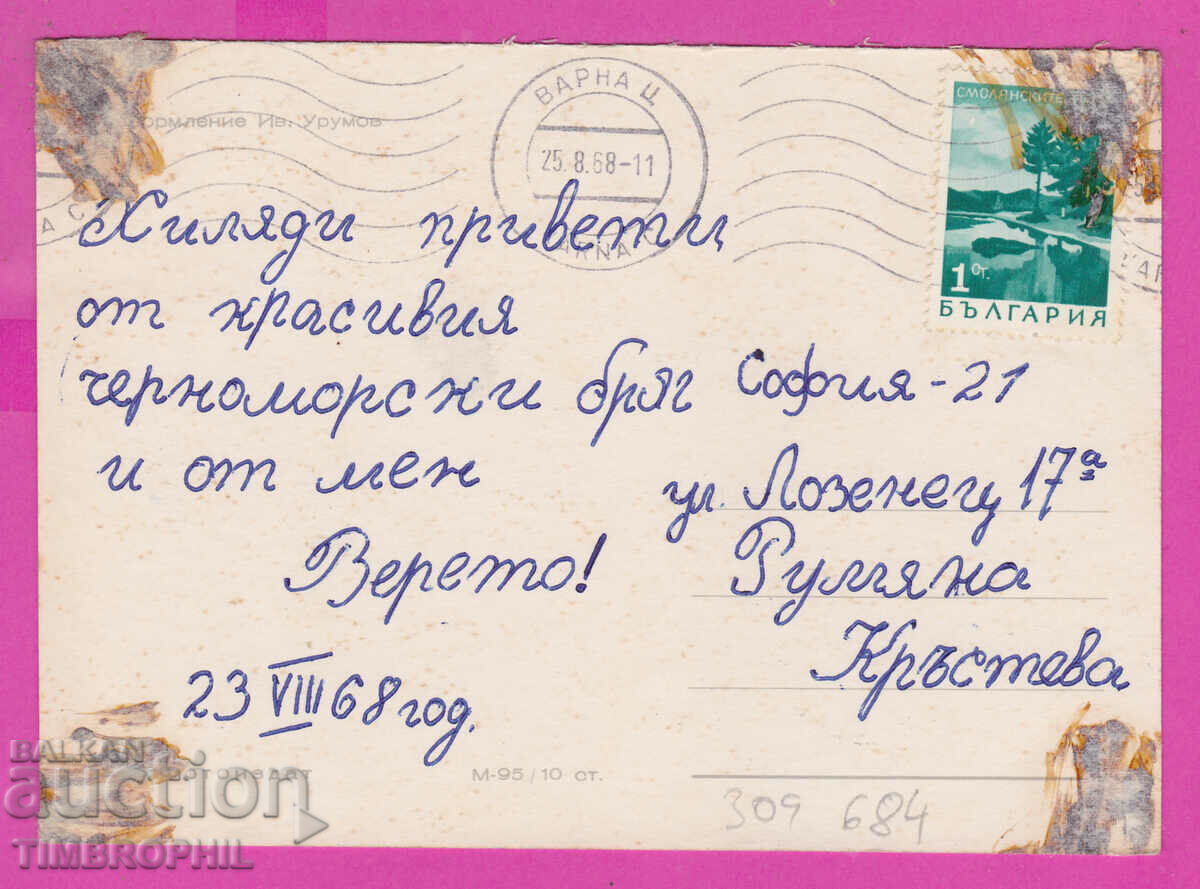 ормление Ив. Урумов
ВАРНА Ц
25.8.68-11
СМОЛЯНСКИТЕ
1 СТ.
БЪЛГАРИЯ
Хиляди приветц
от красивия
черноморски бряг
и от мен
Верето!
23 VIII 68 год.
София-21
ул. Лозенец 17а
Румяна
Кръстева
М-95/10 ст.
309 684
BALKAN
auction
TIMBROPHIL